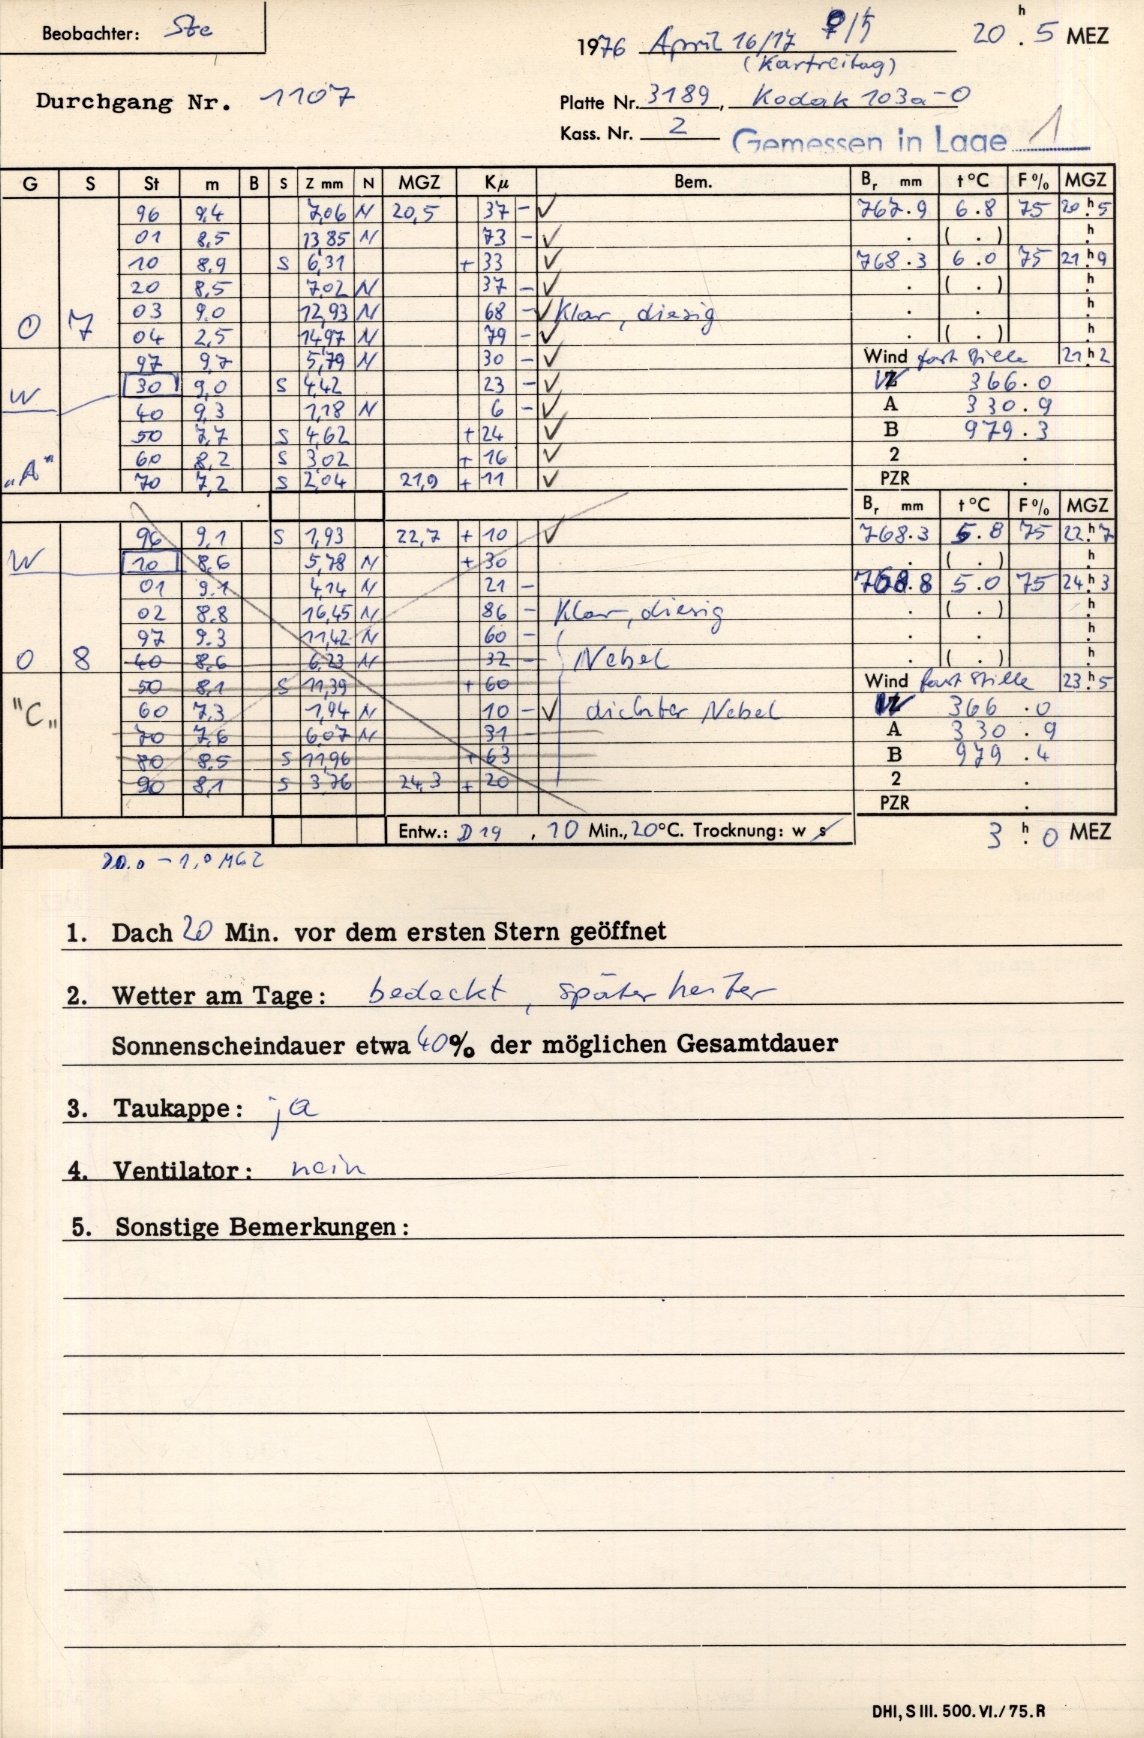 Beobachter: Ste
1976 April 16/17 ♀/♄ 20 h . 5 MEZ
(Karfreitag)
Durchgang Nr. 1107
Platte Nr. 3189, Kodak 103a-O
Kass. Nr. 2
Gemessen in Lage 1
G S St m B S Z mm N MGZ Kμ Bem. Br mm t °C F % MGZ
96 9,4 7,06 N 20,5 37 - ✓ 767.9 6.8 75 20 h 5
01 8,5 13,85 N 73 - ✓ . ( . ) h
10 8,9 S 6,31 + 33 ✓ 768.3 6.0 75 21 h 9
20 8,5 7,02 N 37 - ✓ . ( . ) h
O 7 03 9,0 12,93 N 68 - ✓ Klar, diesig . . h
04 2,5 14,97 N 79 - ✓ . ( . ) h
97 9,7 5,79 N 30 - ✓ Wind fast stille 21 h 2
W 30 9,0 S 4,42 23 - ✓ W 366.0
40 9,3 1,18 N 6 - ✓ A 330.9
50 7,7 S 4,62 + 24 ✓ B 979.3
„A“ 60 8,2 S 3,02 + 16 ✓ 2 .
70 7,2 S 2,04 21,9 + 11 ✓ PZR .
Br mm t °C F % MGZ
96 9,1 S 1,93 22,7 + 10 ✓ 768.3 5.8 75 22 h 7
W 10 8,6 5,78 N + 30 . ( . ) h
01 9,1 4,14 N 21 - 768.8 5.0 75 24 h 3
02 8,8 16,45 N 86 - Klar, diesig . ( . ) h
97 9,3 11,42 N 60 - . . h
O 8 40 8,6 6,23 N 32 - Nebel . ( . ) h
50 8,1 S 11,39 + 60 Wind fast stille 23 h 5
"C„ 60 7,3 1,94 N 10 - ✓ dichter Nebel W 366.0
70 7,6 6,07 N 31 - A 330.9
80 8,5 S 11,96 + 63 B 979.4
90 8,1 S 3,76 24,3 + 20 2 .
PZR .
Entw.: D 19, 10 Min., 20°C. Trocknung: w s
3 h . 0 MEZ
20,0 - 1,0 MGZ
1. Dach 20 Min. vor dem ersten Stern geöffnet
2. Wetter am Tage: bedeckt, später heiter
Sonnenscheindauer etwa 40% der möglichen Gesamtdauer
3. Taukappe: ja
4. Ventilator: nein
5. Sonstige Bemerkungen:
DHI, S III. 500. VI./75. R